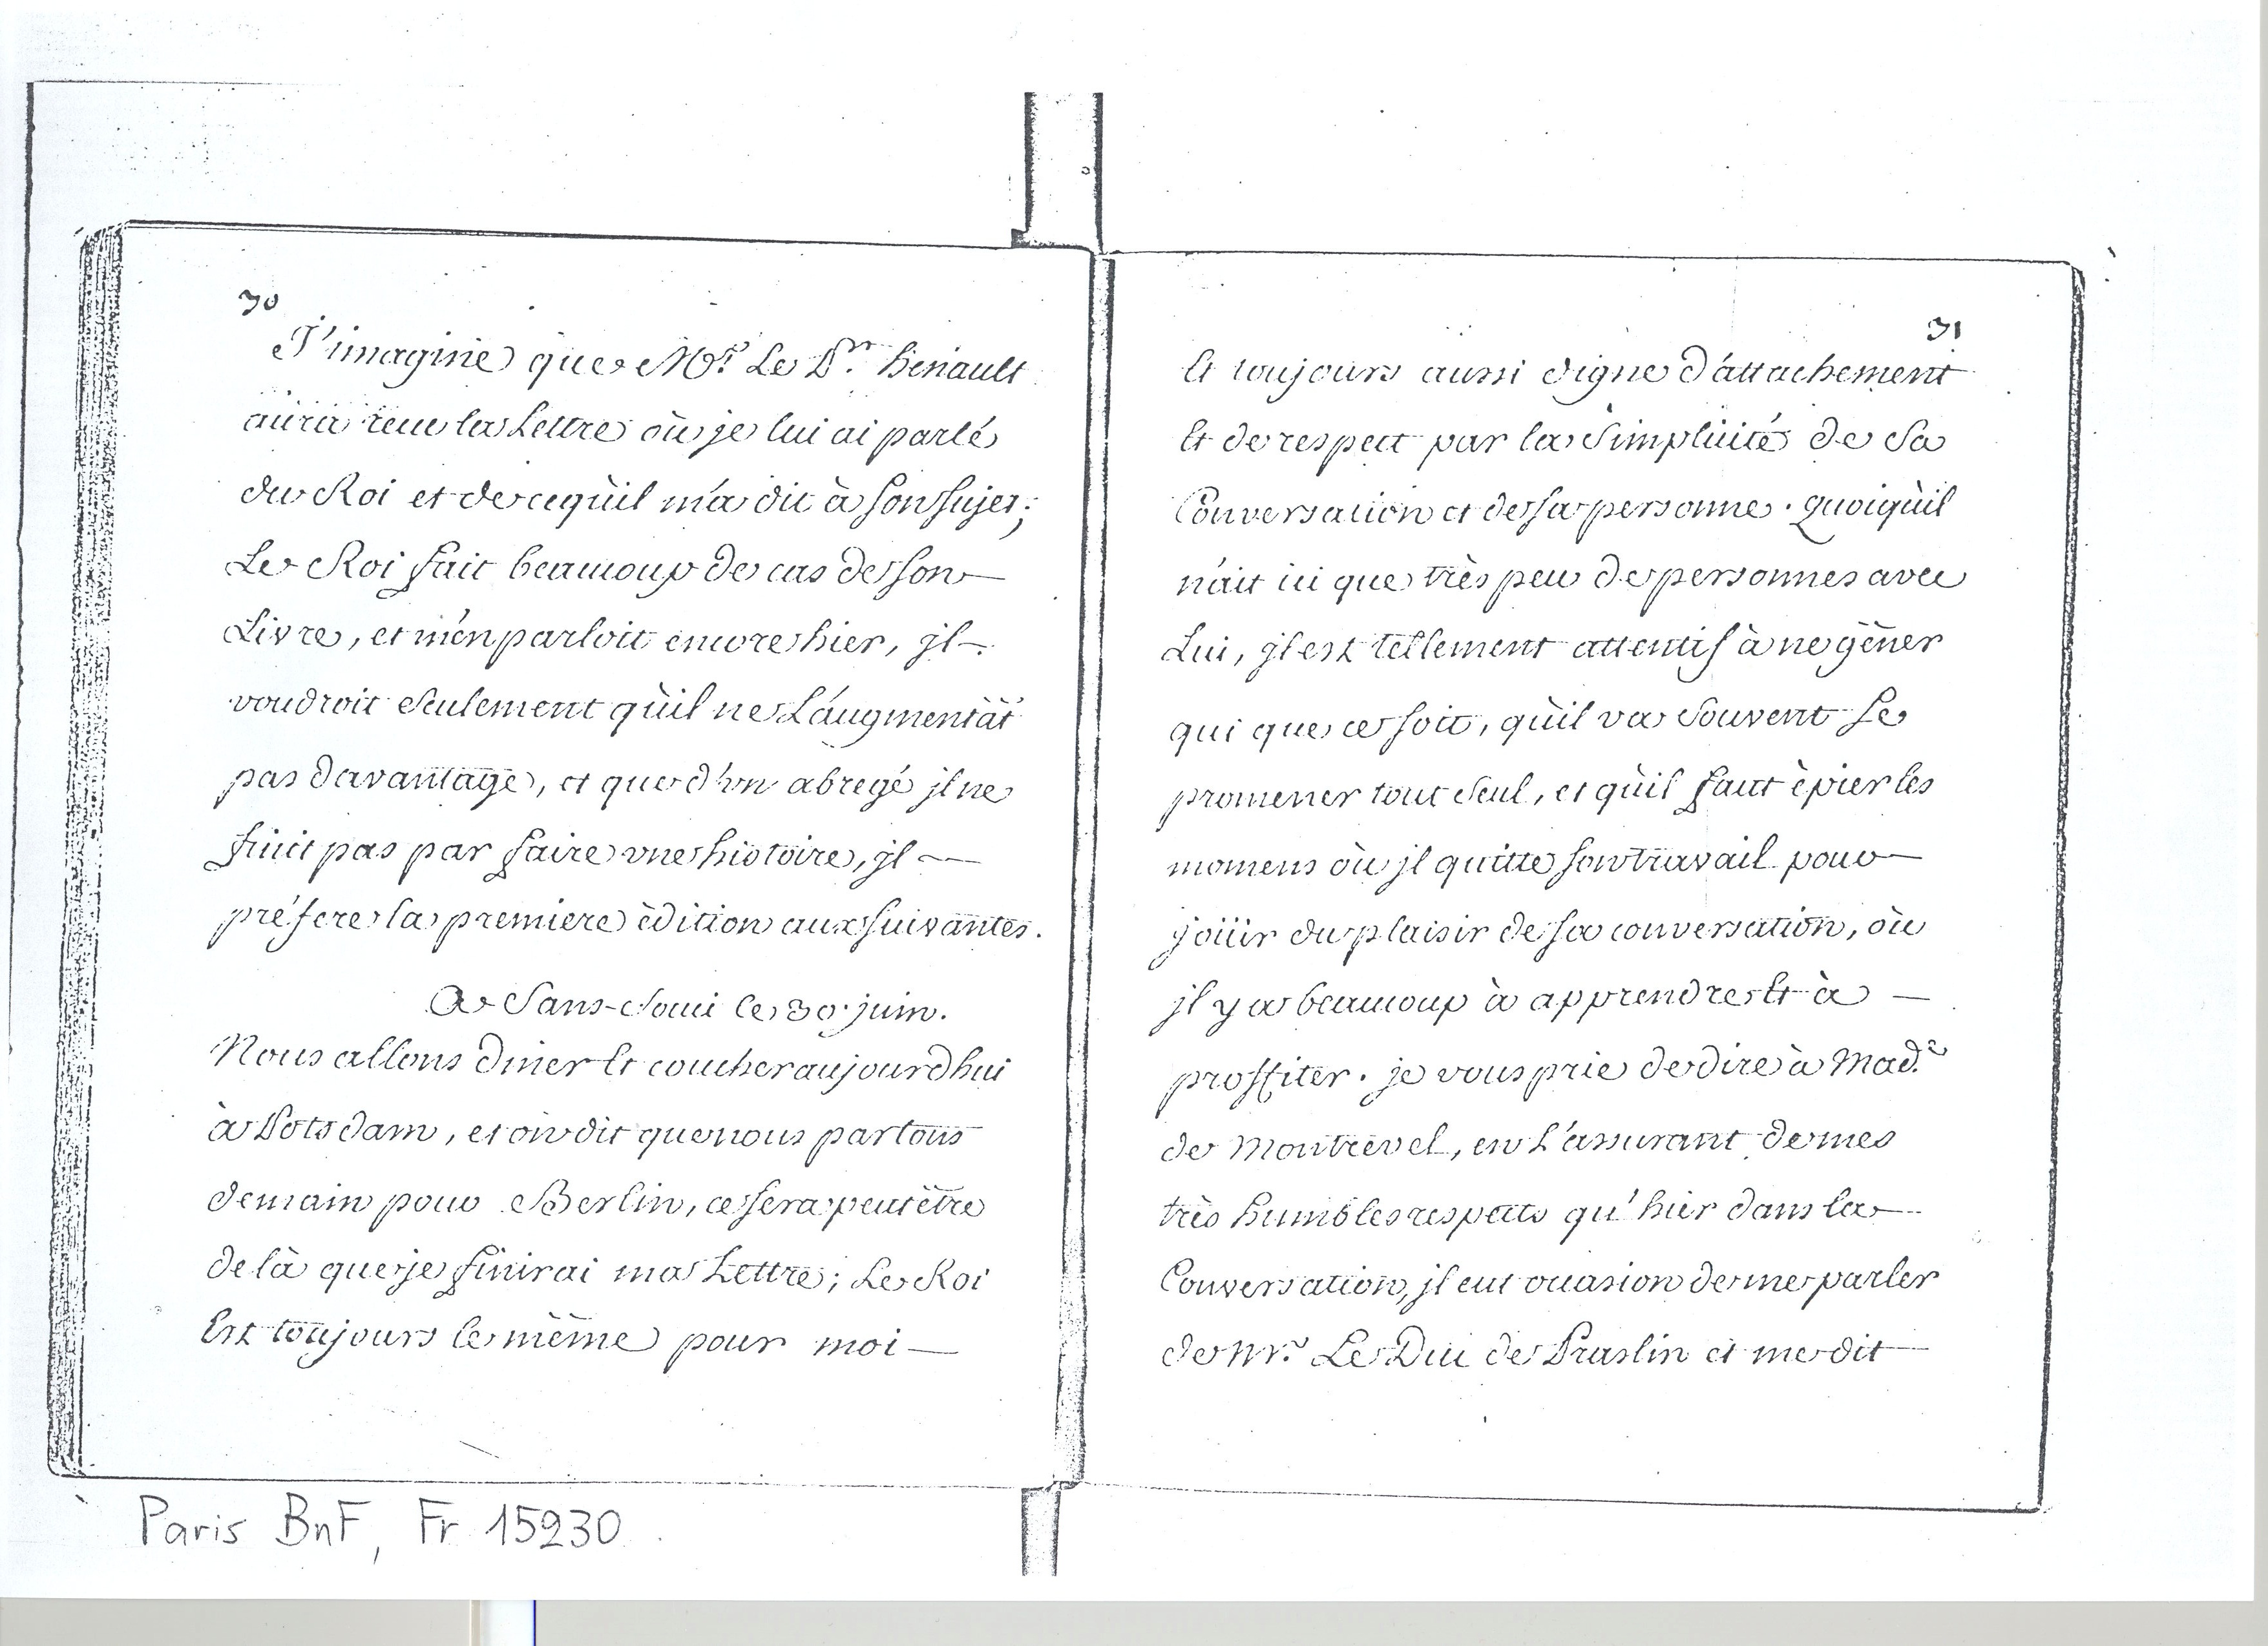 30
J'imagine que Mr. Le Pr. henault
aura reçu la Lettre où je lui ai parlé
du Roi et de ce qu'il m'a dit à son sujet;
Le Roi fait beaucoup de cas de son
Livre, et m'en parloit encore hier, jl
voudroit seulement qu'il ne L'augmentât
pas davantage, et que d'vn abregé jl ne
finit pas par faire vne histoire, jl
préfere la premiere èdition aux suivantes.
A Sans-Souci le 30. juin.
Nous allons diner Et coucher aujourdhui
à Potsdam, et on dit que nous partons
demain pour Berlin, ce sera peut être
de là que je finirai ma Lettre; Le Roi
Est toujours le même pour moi
31
Et toujours aussi digne d'attachement
Et de respect par la Simplicité de Sa
Conversation et de sa personne. quoiqu'il
n'ait ici que très peu de personnes avec
Lui, jl est tellement attentif à ne gêner
qui que ce soit, qu'il va Souvent Se
promener tout Seul, et qu'il faut èpier les
momens où jl quitte son travail pour
joüir du plaisir de sa conversation, où
jl y a beaucoup à apprendre Et à
proffiter. je vous prie de dire à Mad.e
de Montrevel, en L'assurant de mes
très humbles respects qu'hier dans la
Conversation, jl eut occasion de me parler
de Mr. Le Duc de Praslin et me dit
Paris BnF, Fr 15230